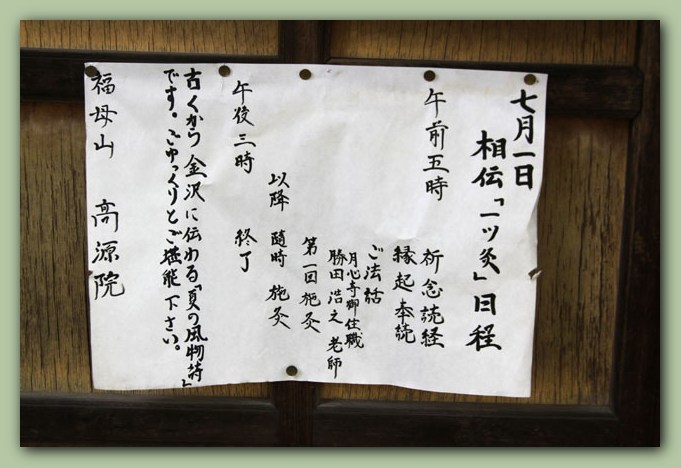 七月一日
相伝「一ツ灸」日程
午前五時 祈念読経
縁起奉読
ご法話
月心寺御住職
勝田浩之老師
第一回施灸
以降 随時 施灸
午後三時 終了
古くから金沢に伝わる「夏の風物詩」
です。ごゆっくりとご堪能下さい。
福母山 高源院